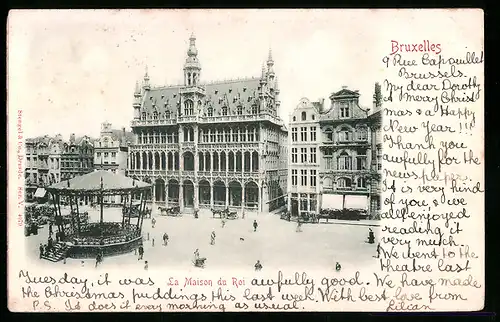 Bruxelles
9 Rue Capouillet
Brussels.
My dear Dorothy
A Merry Christ
mas & a Happy
New Year!!!
Thank you
awfully for the
newspaper.
It is very kind
of you, & we
all enjoyed
reading it
very much.
We went to the
theatre last
Tuesday, it was awfully good. We have made
the Christmas puddings this last week. With best love from
P.S. It does it every morning as usual. Lilian
La Maison du Roi
Stengel & Co., Dresden